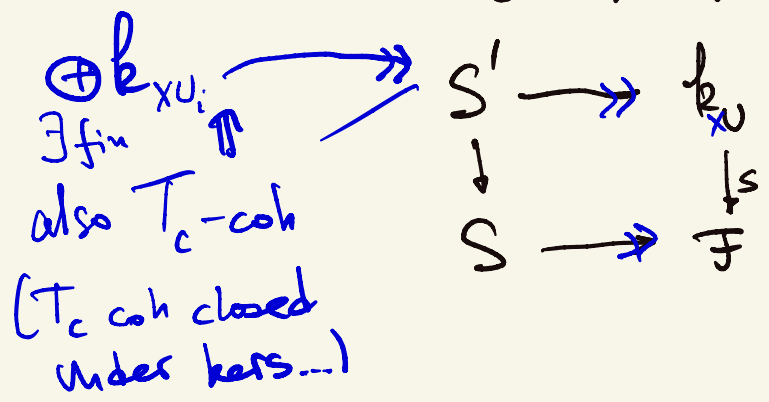 ⊕ k_{XU_i} ↠ S' ↠ k_{XU}
∃ fin ⇑ ↓ ↓ s
also T_c-coh S ↠ F
(T_c coh closed
under kers...)